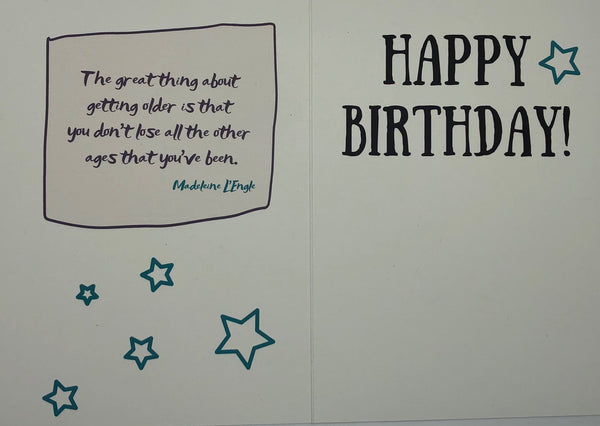 The great thing about
getting older is that
you don't lose all the other
ages that you've been.
Madeleine L'Engle
HAPPY
BIRTHDAY!